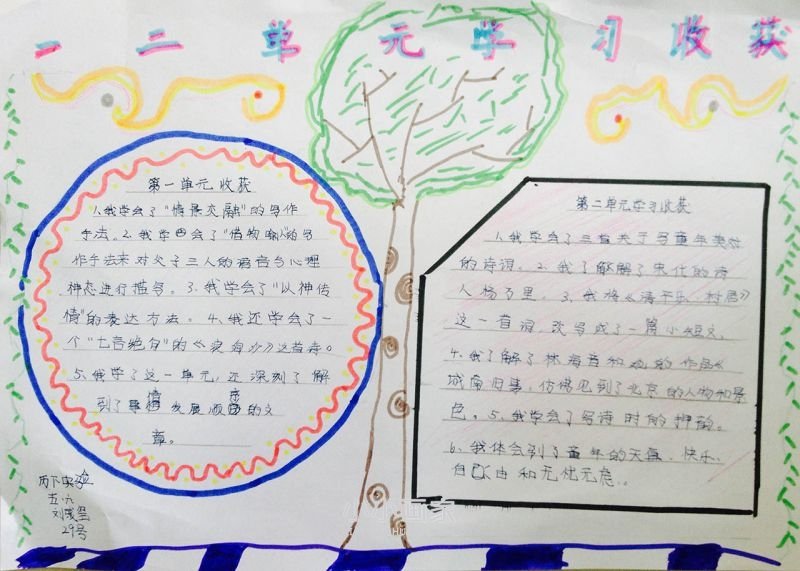 一二单元学习收获
第一单元收获
1.我学会了"情景交融"的写作
手法。2.我学会了"借物喻人"的写
作手法来对父子三人的语言与心理
神态进行描写。3.我学会了"以神传
情"的表达方法。4.我还学会了一
个"七言绝句"的《浪淘沙》这首诗。
5.我学了这一单元,还深刻了解
到了事情发展顺序的文
章。
历下实验
五.六
29号
第二单元学习收获
1.我学会了三首关于写童年美好
的诗词。2.我了解了宋代的诗
人杨万里。3.我将《清平乐·村居》
这一首词,改写成了一篇小短文。
4.我了解了林海音和她的作品《
城南旧事,仿佛见到了北京的人物和景
色。5.我学会了写诗时的押韵。
6.我体会到了童年的天真、快乐、
自由和无忧无虑。